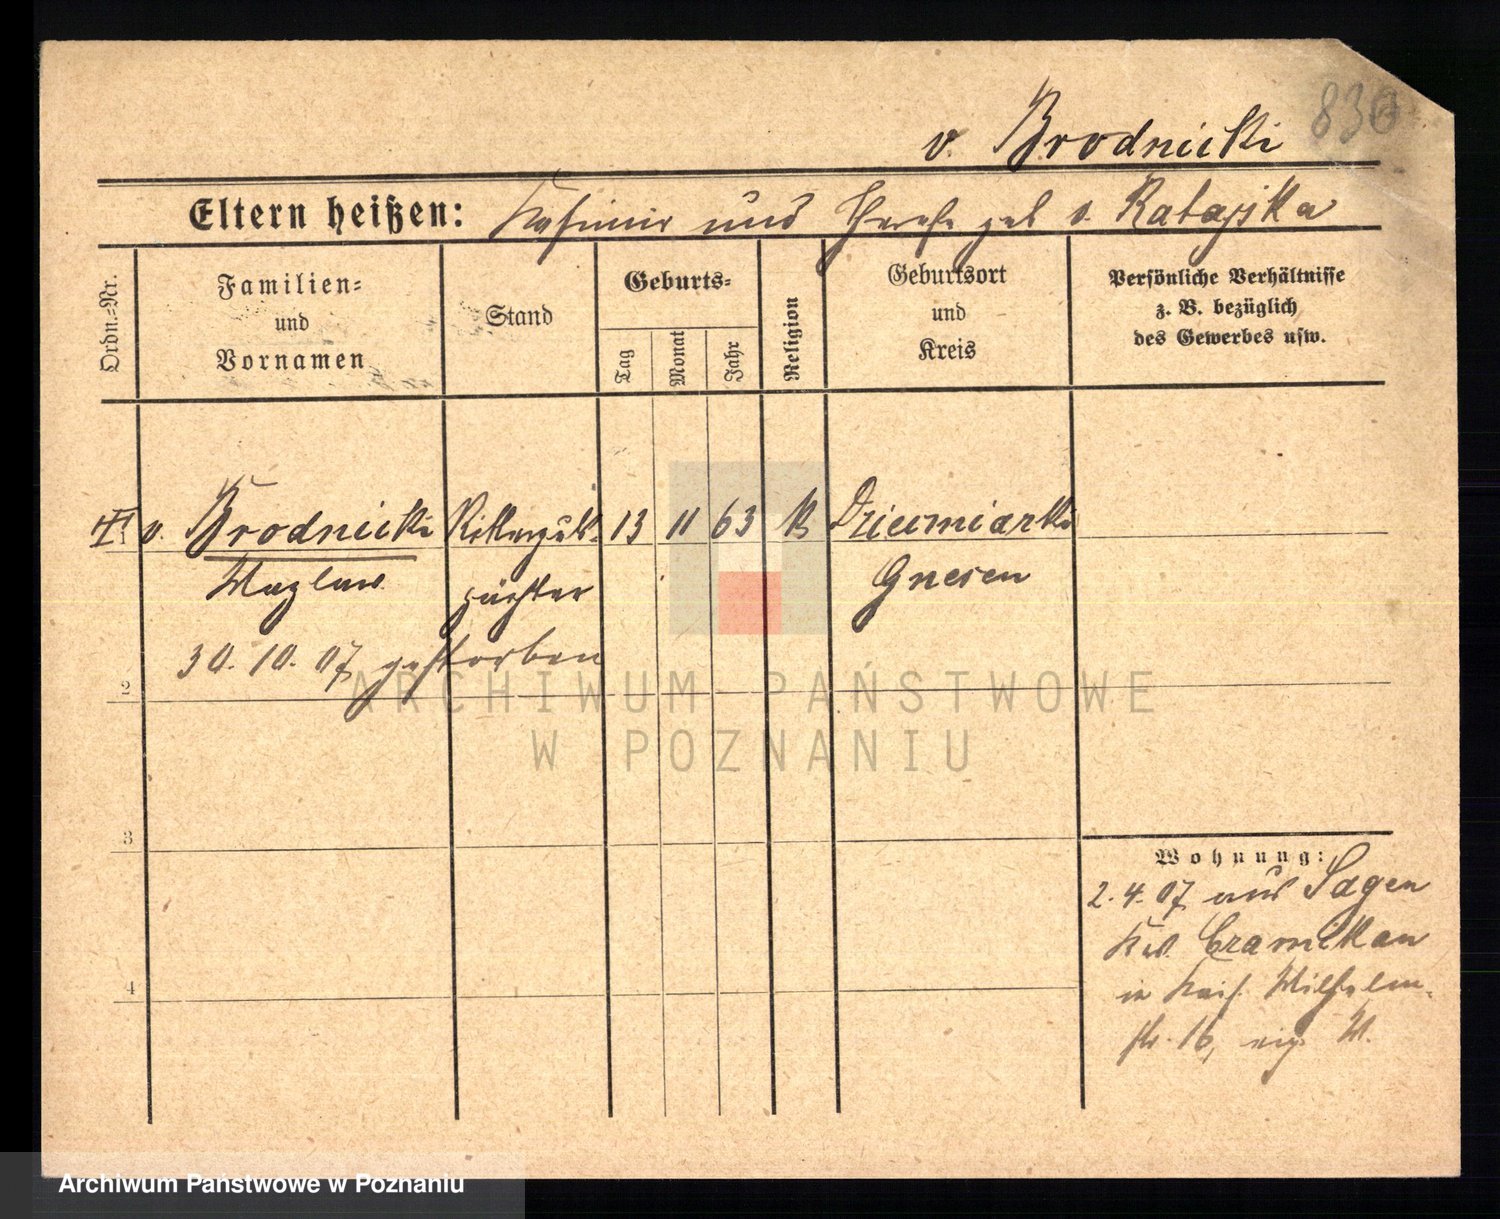 830
v. Brodnicki
Eltern heißen: Kasimir und Therese geb v. Ratajska
Ordn.-Nr.
Familien-
und
Vornamen
Stand
Geburts-
Tag
Monat
Jahr
Religion
Geburtsort
und
Kreis
Persönliche Verhältnisse
z. B. bezüglich
des Gewerbes usw.
1 v. Brodnicki Ritterguts- 13 11 63 K Dziecmiarki
Wazlaw pächter Gnesen
30. 10. 07 gestorben
2
3
4
Wohnung:
2. 4. 07 aus Sagen
Krs. Czarnikau
in Kais. Wilhelm-
str. 16, eig. W.
ARCHIWUM PAŃSTWOWE
W POZNANIU
Archiwum Państwowe w Poznaniu